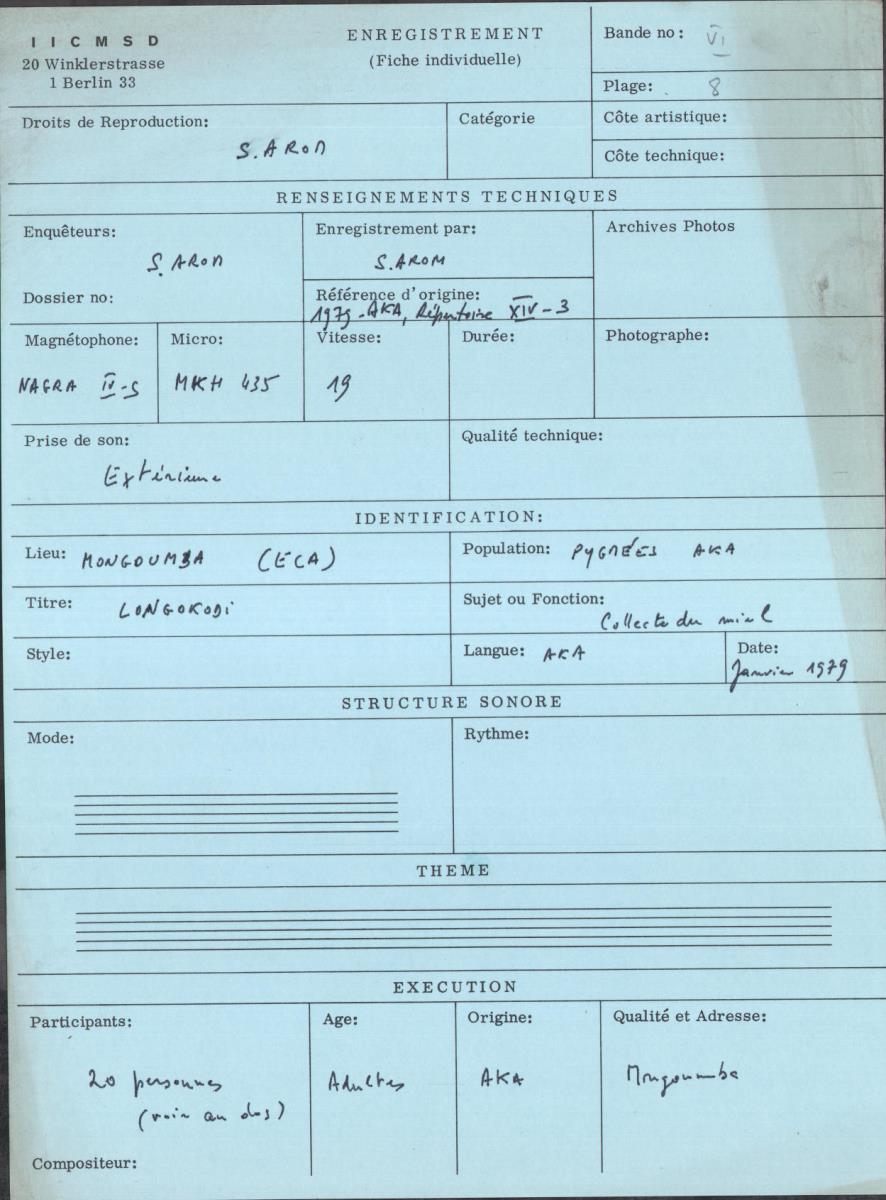 I I C M S D
20 Winklerstrasse
1 Berlin 33
ENREGISTREMENT
(Fiche individuelle)
Bande no: VI
Plage: 8
Droits de Reproduction:
S. AROM
Catégorie
Côte artistique:
Côte technique:
RENSEIGNEMENTS TECHNIQUES
Enquêteurs:
S. AROM
Dossier no:
Enregistrement par:
S. AROM
Référence d'origine:
1979-AKA, Répertoire XIV-3
Archives Photos
Magnétophone:
NAGRA IV-S
Micro:
MKH 435
Vitesse:
19
Durée:
Photographe:
Prise de son:
Extérieure
Qualité technique:
IDENTIFICATION:
Lieu: MONGOUMBA (ECA)
Population: PYGMÉES AKA
Titre: LONGOKODI
Sujet ou Fonction:
Collecte du miel
Style:
Langue: AKA
Date:
Janvier 1979
STRUCTURE SONORE
Mode:
Rythme:
THEME
EXECUTION
Participants:
20 personnes
(voir au dos)
Age:
Adultes
Origine:
AKA
Qualité et Adresse:
Mongoumba
Compositeur: